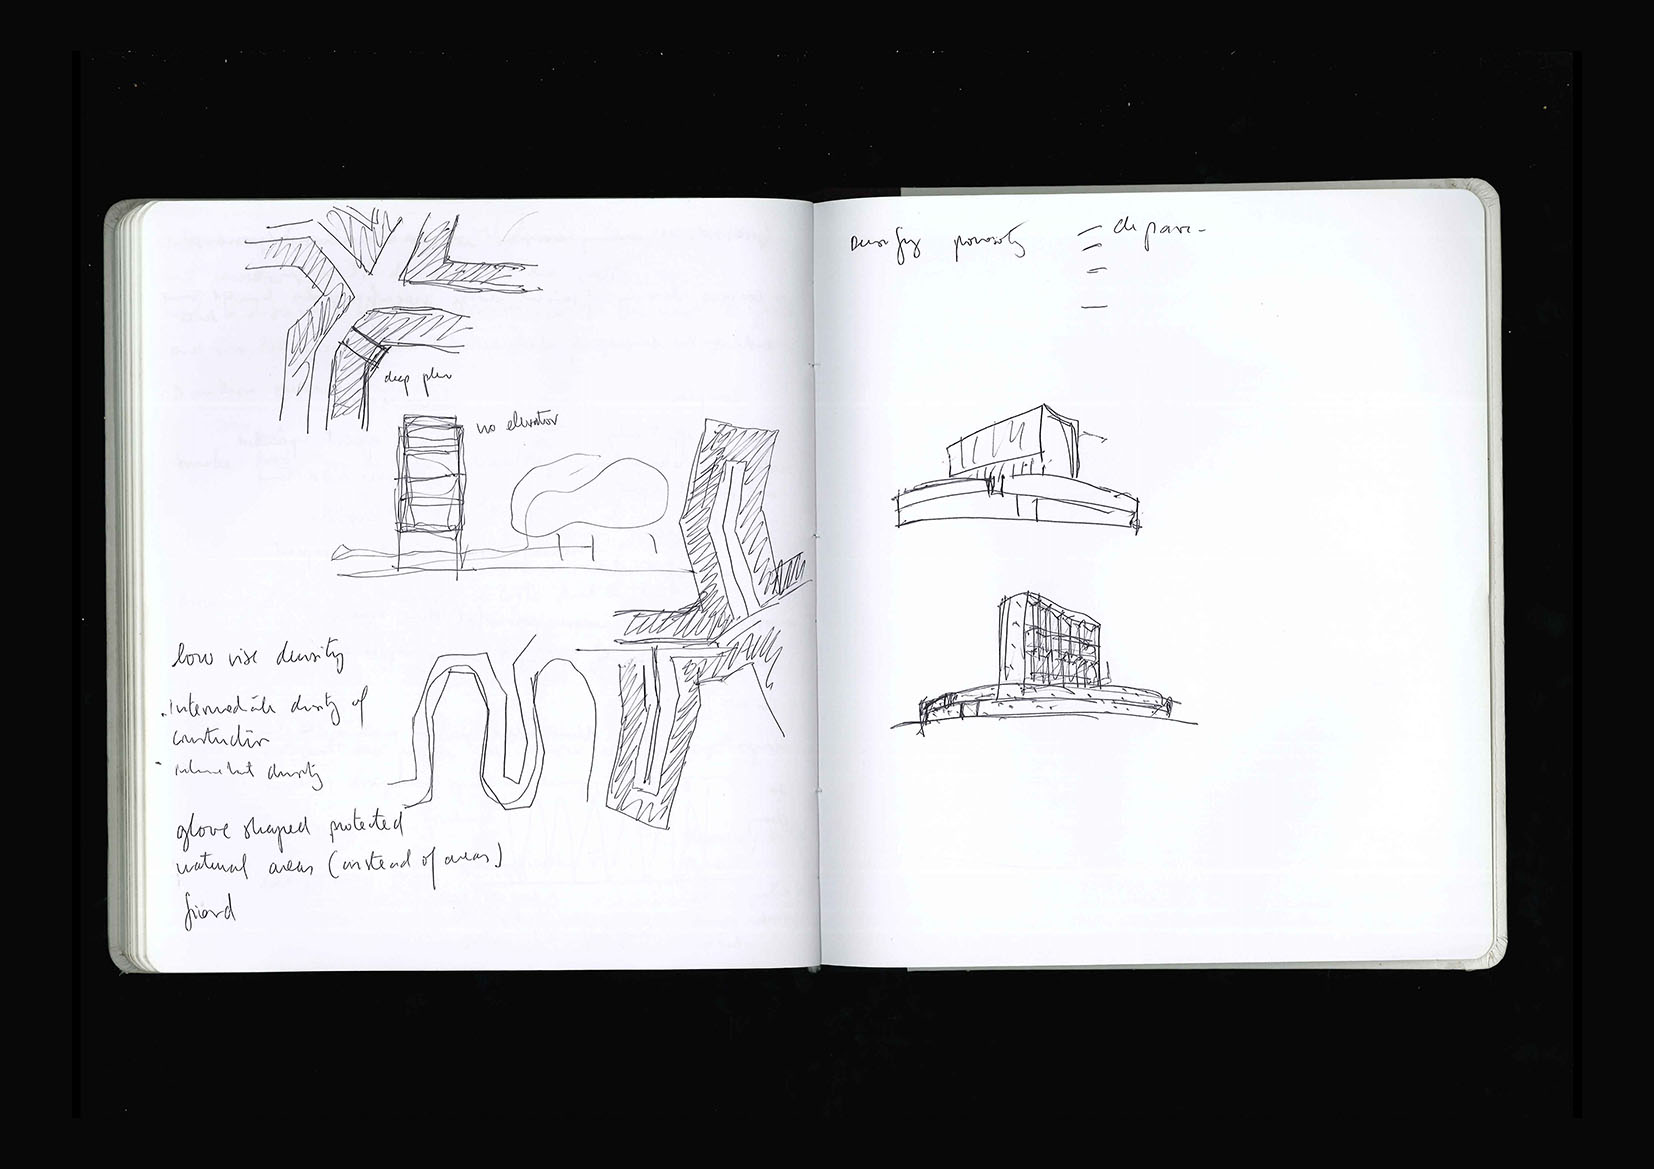 deep plan
no elevator
low rise density
. intermediate density of
construction
- density
glove shaped protected
natural areas (instead of areas)
fiord
porosity